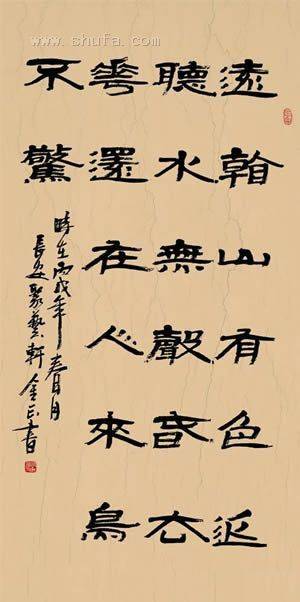 遠看山有色近
聽水無聲春去
華還在人來鳥
不驚
時在丙戌年春月
長安聚藝軒金正書
www.shufa.com